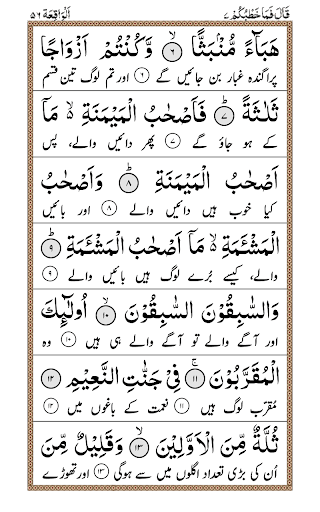 قَالَ فَمَا خَطْبُكُمْ ٢٧ اَلْوَاقِعَة ٥٦
هَبَآءً مُّنْۢبَثًّا ۙ‏﴿۶﴾‏ وَّكُنْتُمْ اَزْوَاجًا
پراگندہ غبار بن جائیں گے ﴿۶﴾ اور تم لوگ تین قسم
ثَلٰثَةً ؕ‏﴿۷﴾‏ فَاَصْحٰبُ الْمَيْمَنَةِ ۙ۬ مَاۤ
کے ہو جاؤ گے ﴿۷﴾ پھر دائیں والے، پس
اَصْحٰبُ الْمَيْمَنَةِ ؕ‏﴿۸﴾‏ وَاَصْحٰبُ
کیا خوب ہیں دائیں والے ﴿۸﴾ اور بائیں
الْمَشْـَٔمَةِ ۙ۬ مَاۤ اَصْحٰبُ الْمَشْـَٔمَةِ ؕ‏﴿۹﴾‏
والے، کیسے بُرے لوگ ہیں بائیں والے ﴿۹﴾
وَالسّٰبِقُوْنَ السّٰبِقُوْنَ ۚۙ‏﴿۱۰﴾‏ اُولٰٓئِكَ
اور آگے والے تو آگے والے ہی ہیں ﴿۱۰﴾ وہ
الْمُقَرَّبُوْنَ ۚ‏﴿۱۱﴾‏ فِيْ جَنّٰتِ النَّعِيْمِ ‏﴿۱۲﴾‏
مُقرّب لوگ ہیں ﴿۱۱﴾ نعمت کے باغوں میں ﴿۱۲﴾
ثُلَّةٌ مِّنَ الْاَوَّلِيْنَ ۙ‏﴿۱۳﴾‏ وَقَلِيْلٌ مِّنَ
اُن کی بڑی تعداد اگلوں میں سے ہوگی ﴿۱۳﴾ اور تھوڑے